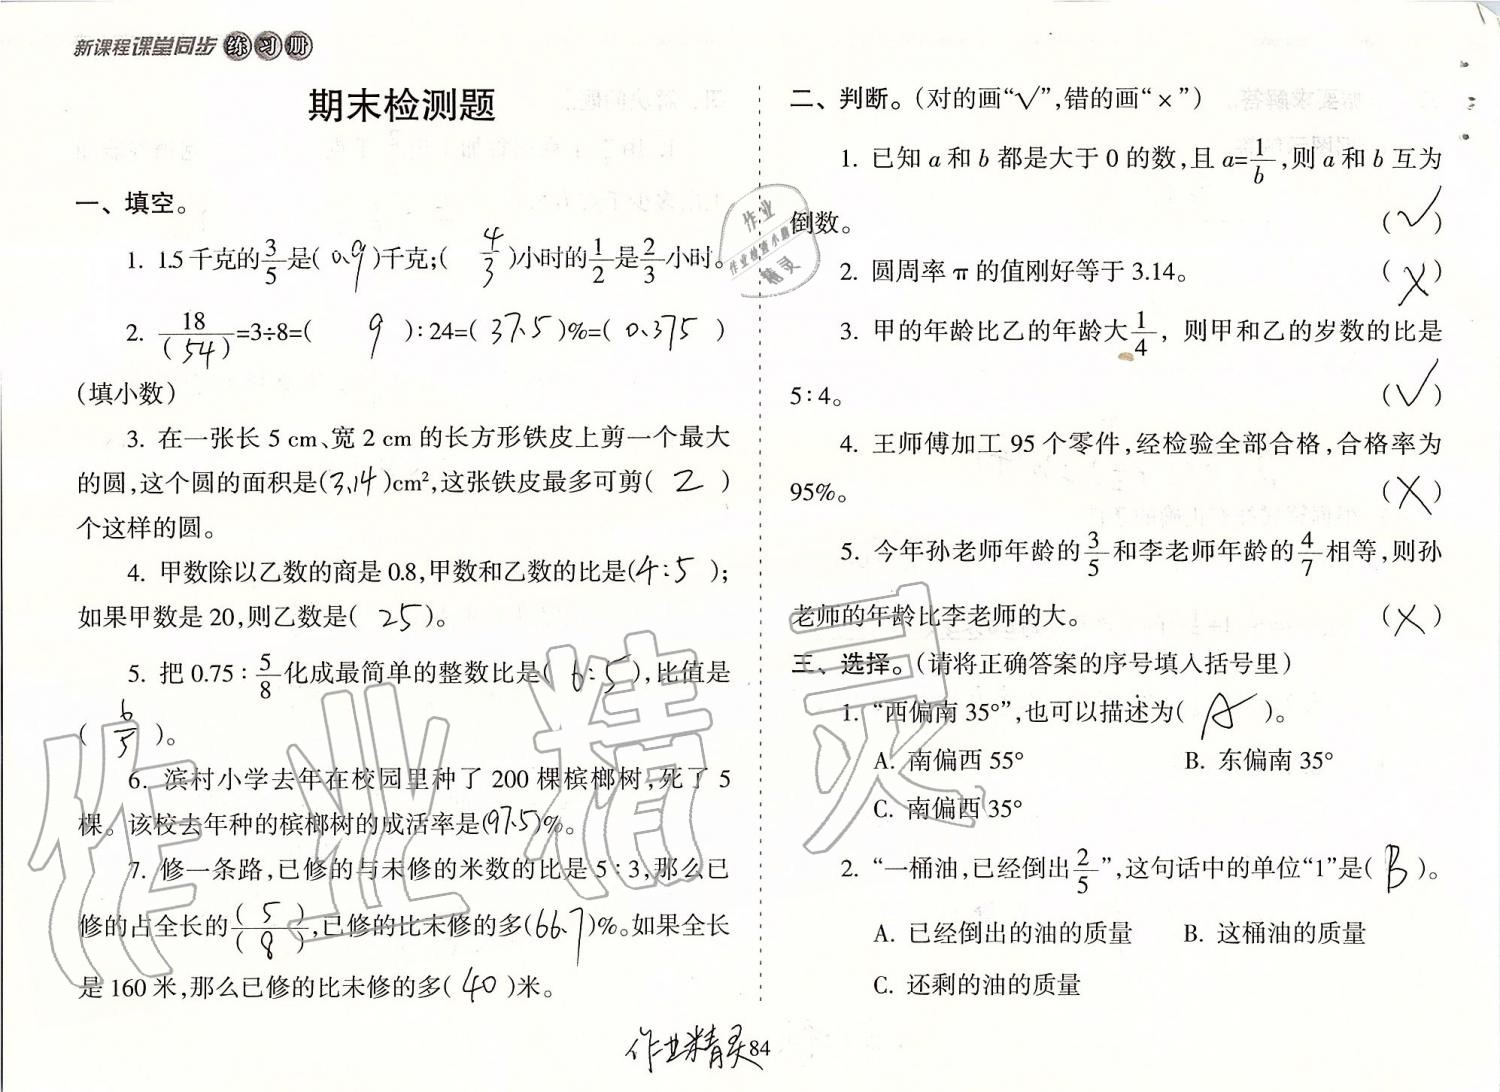 新课程课堂同步练习册
期末检测题
一、填空。
1. 1.5千克的3/5是(0.9)千克;(4/3)小时的1/2是2/3小时。
2. 18/(54)=3÷8=( 9 ):24=(37.5)%=(0.375)
(填小数)
3. 在一张长5 cm、宽2 cm的长方形铁皮上剪一个最大
的圆,这个圆的面积是(3.14)cm²,这张铁皮最多可剪( 2 )
个这样的圆。
4. 甲数除以乙数的商是0.8,甲数和乙数的比是(4:5);
如果甲数是20,则乙数是( 25 )。
5. 把0.75:5/8化成最简单的整数比是( 6:5 ),比值是
( 6/5 )。
6. 滨村小学去年在校园里种了200棵槟榔树,死了5
棵。该校去年种的槟榔树的成活率是(97.5)%。
7. 修一条路,已修的与未修的米数的比是5:3,那么已
修的占全长的(5)/(8),已修的比未修的多(66.7)%。如果全长
是160米,那么已修的比未修的多( 40 )米。
二、判断。(对的画“√”,错的画“×”)
1. 已知a和b都是大于0的数,且a=1/b,则a和b互为
倒数。 (√)
2. 圆周率π的值刚好等于3.14。 (×)
3. 甲的年龄比乙的年龄大1/4,则甲和乙的岁数的比是
5:4。 (√)
4. 王师傅加工95个零件,经检验全部合格,合格率为
95%。 (×)
5. 今年孙老师年龄的3/5和李老师年龄的4/7相等,则孙
老师的年龄比李老师的大。 (×)
三、选择。(请将正确答案的序号填入括号里)
1. “西偏南35°”,也可以描述为( A )。
A. 南偏西55° B. 东偏南35°
C. 南偏西35°
2. “一桶油,已经倒出2/5”,这句话中的单位“1”是( B )。
A. 已经倒出的油的质量 B. 这桶油的质量
C. 还剩的油的质量
作业精灵 84
作业
作业检查小助
精灵
作业精灵